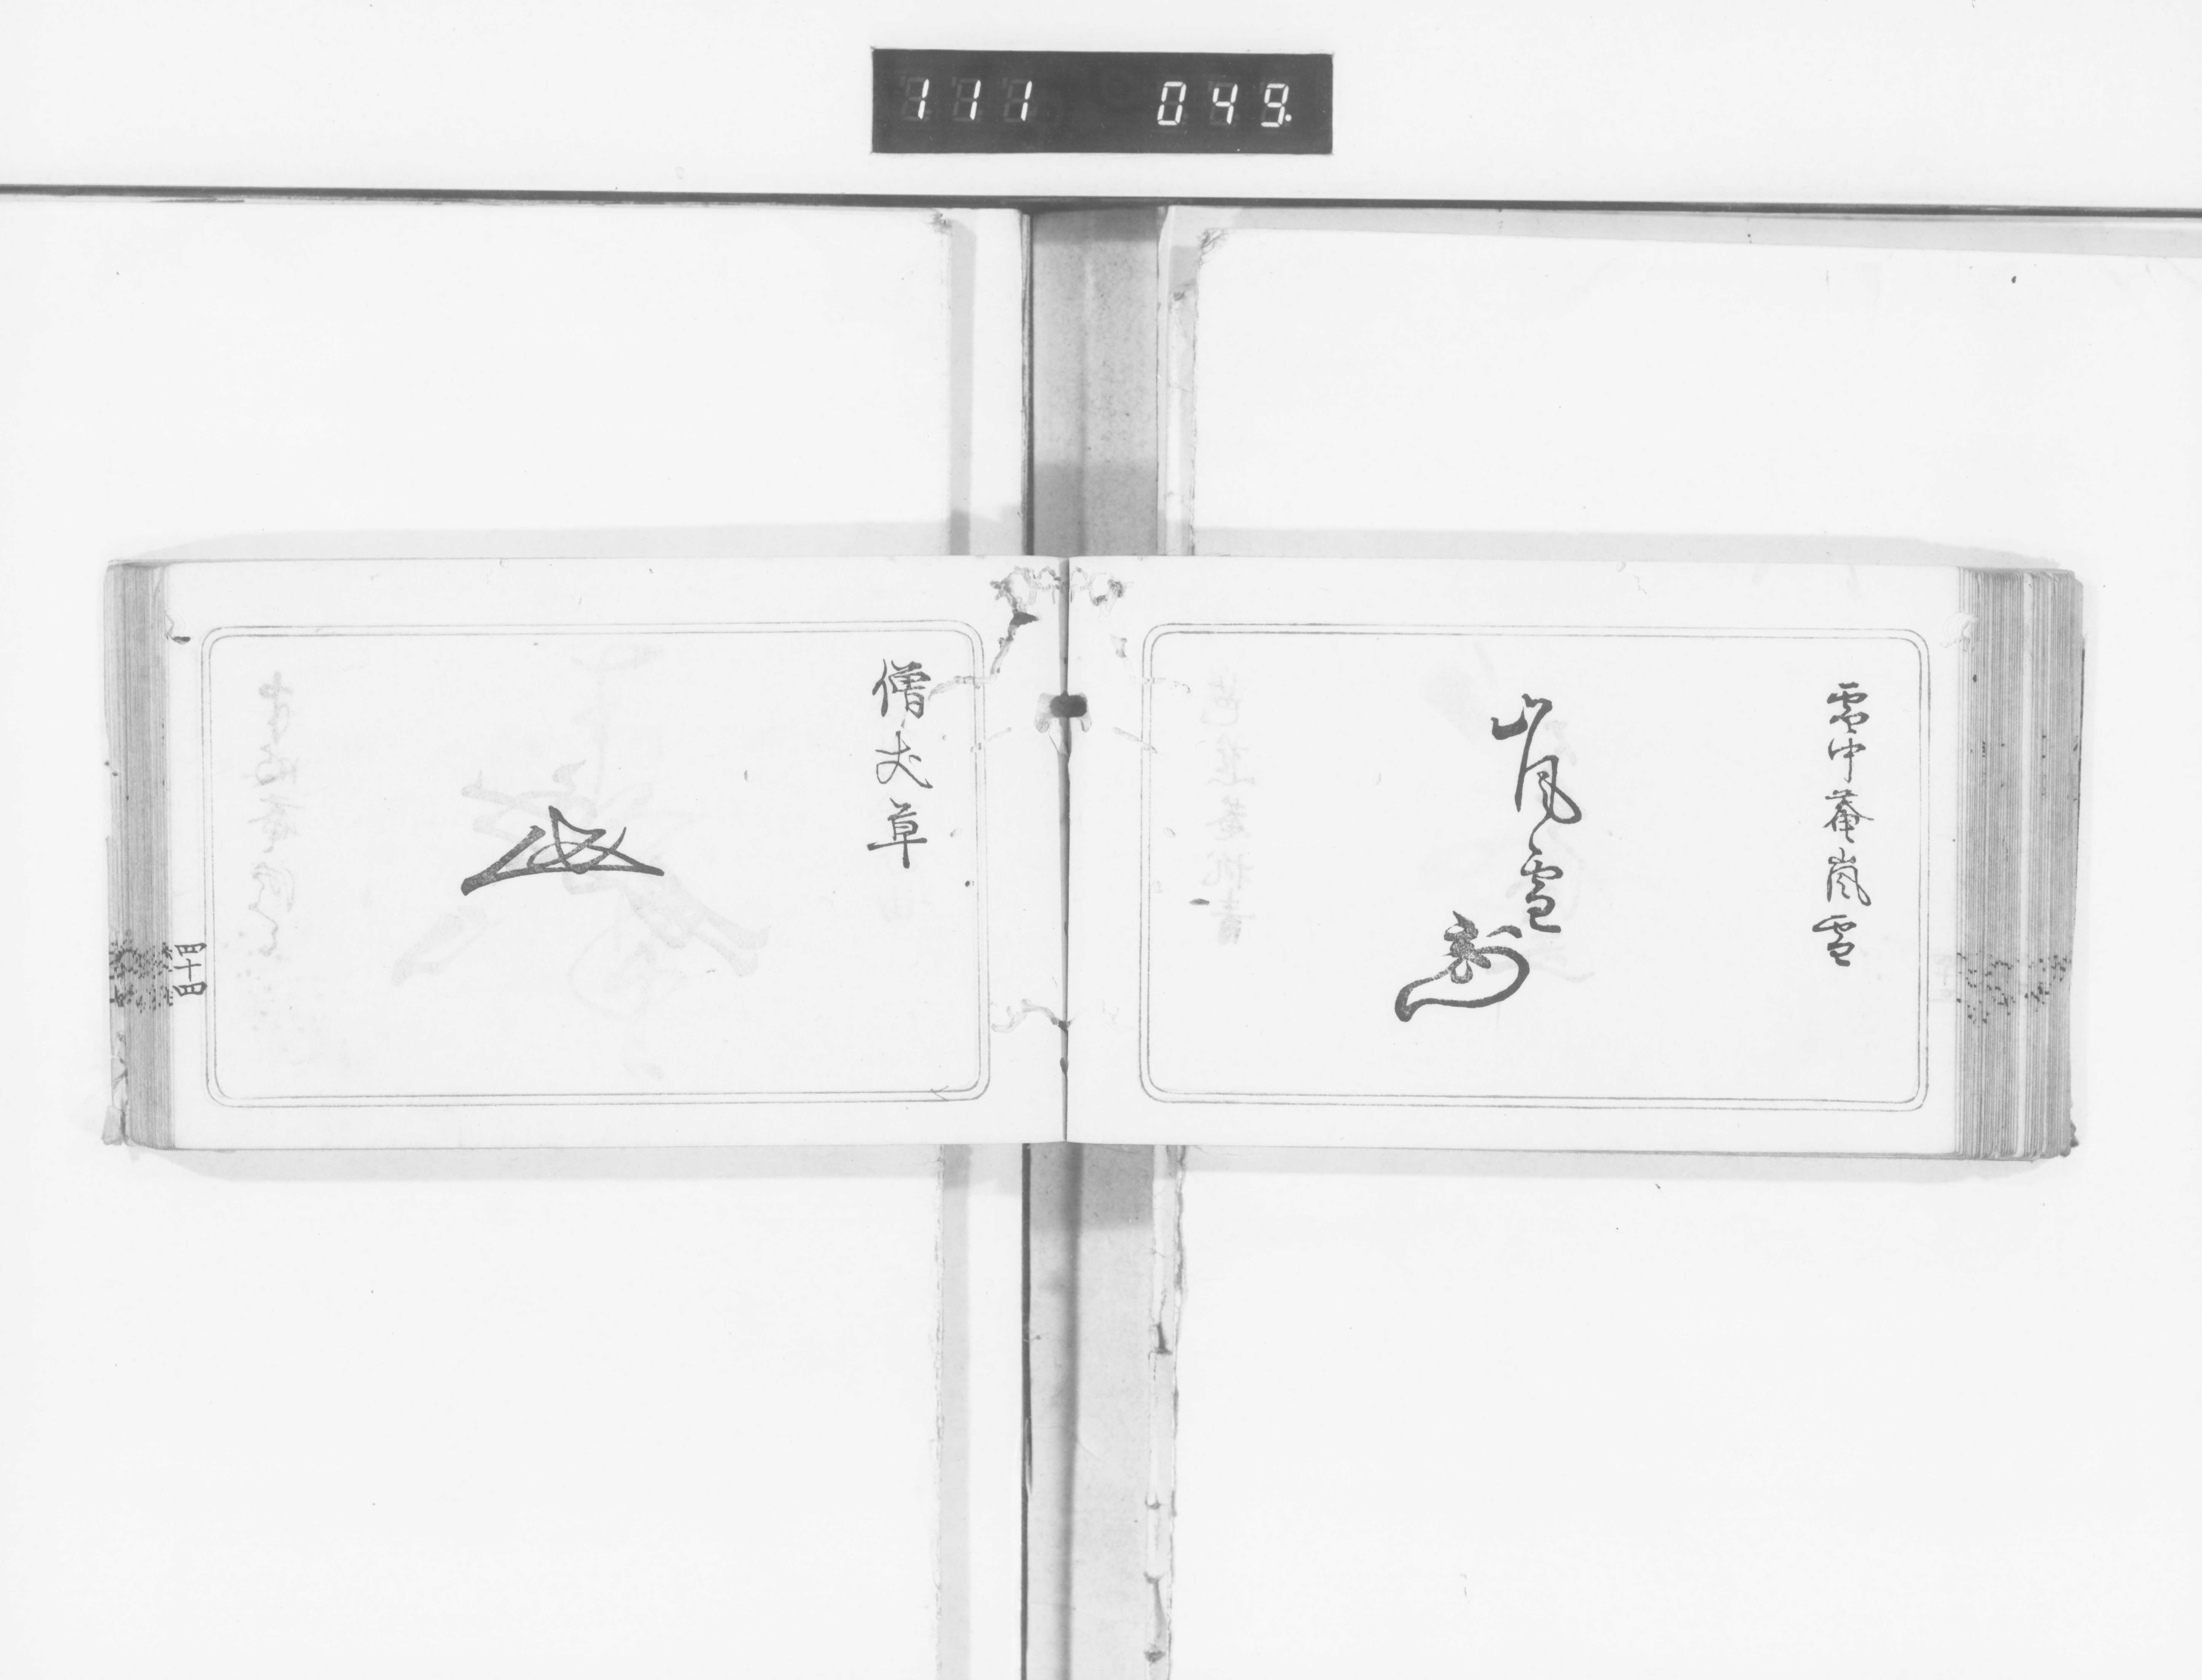 111 049
雪中菴嵐雪
嵐雪
僧丈草
四十四